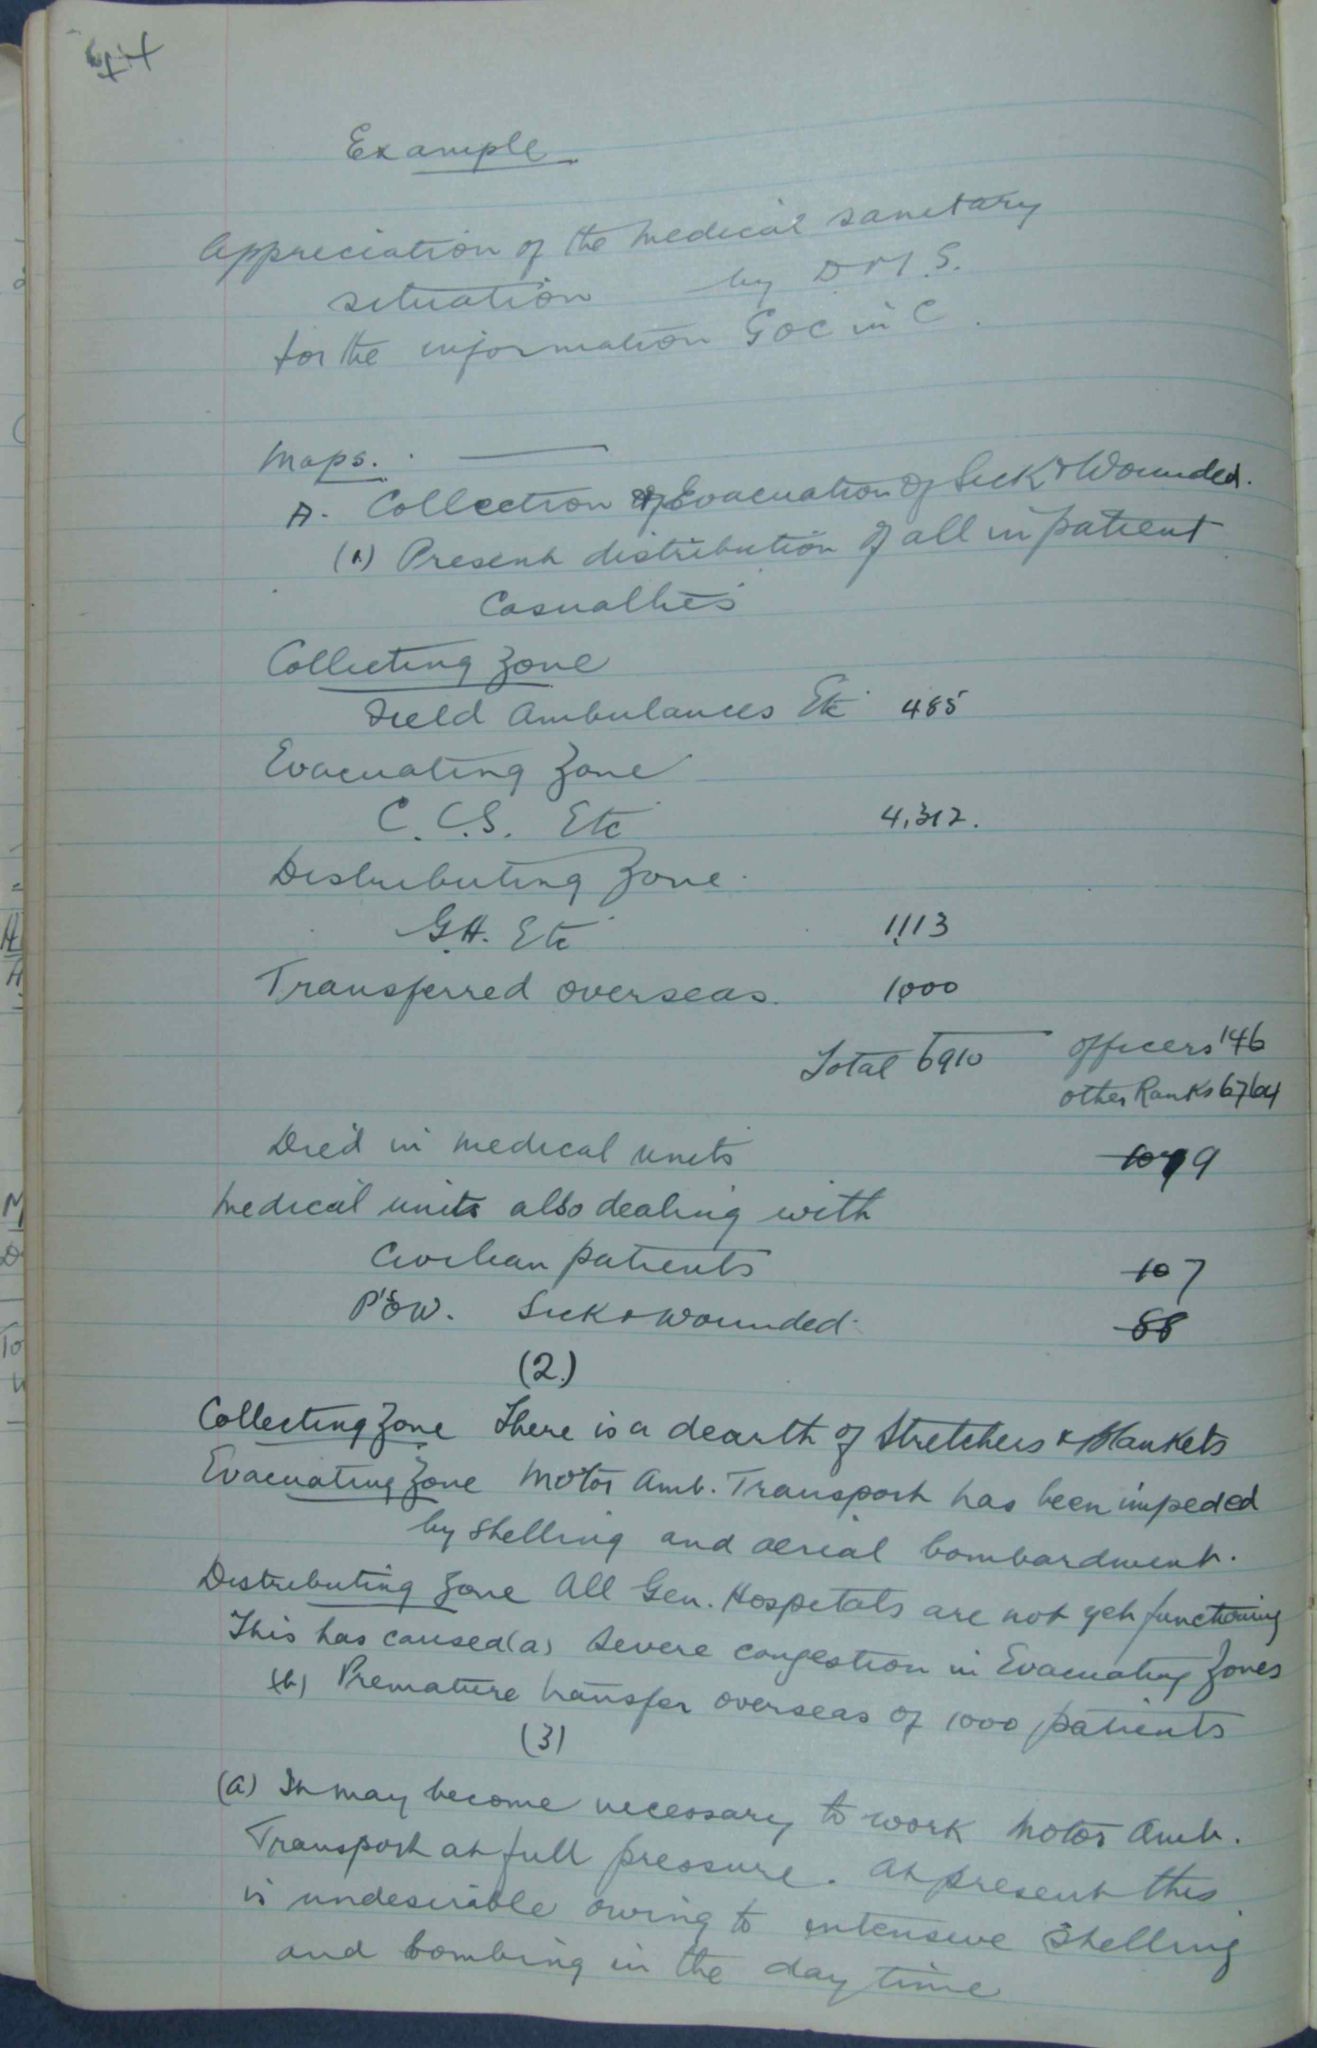 Example
Appreciation of the medical sanitary
situation by D M S.
for the information GOC in C.
Maps.
A. Collection & Evacuation of Sick & Wounded.
(1) Present distribution of all in patient
Casualties
Collecting Zone
Field Ambulances Etc 485
Evacuating Zone
C. C. S. Etc 4,312.
Distributing Zone.
G.H. Etc 1,113
Transferred overseas. 1,000
Total 6910 Officers 146
other Ranks 6764
Died in medical units 9
Medical units also dealing with
Civilian patients 107
P's O W. Sick & Wounded. 88
(2.)
Collecting Zone There is a dearth of Stretchers & Blankets
Evacuating Zone Motor Amb. Transport has been impeded
by Shelling and aerial bombardment.
Distributing Zone All Gen. Hospitals are not yet functioning
This has caused (a) Severe congestion in Evacuating Zones
(b) Premature transfer overseas of 1000 patients
(3)
(a) It may become necessary to work Motor Amb.
Transport at full pressure. At present this
is undesirable owing to intensive Shelling
and bombing in the day time